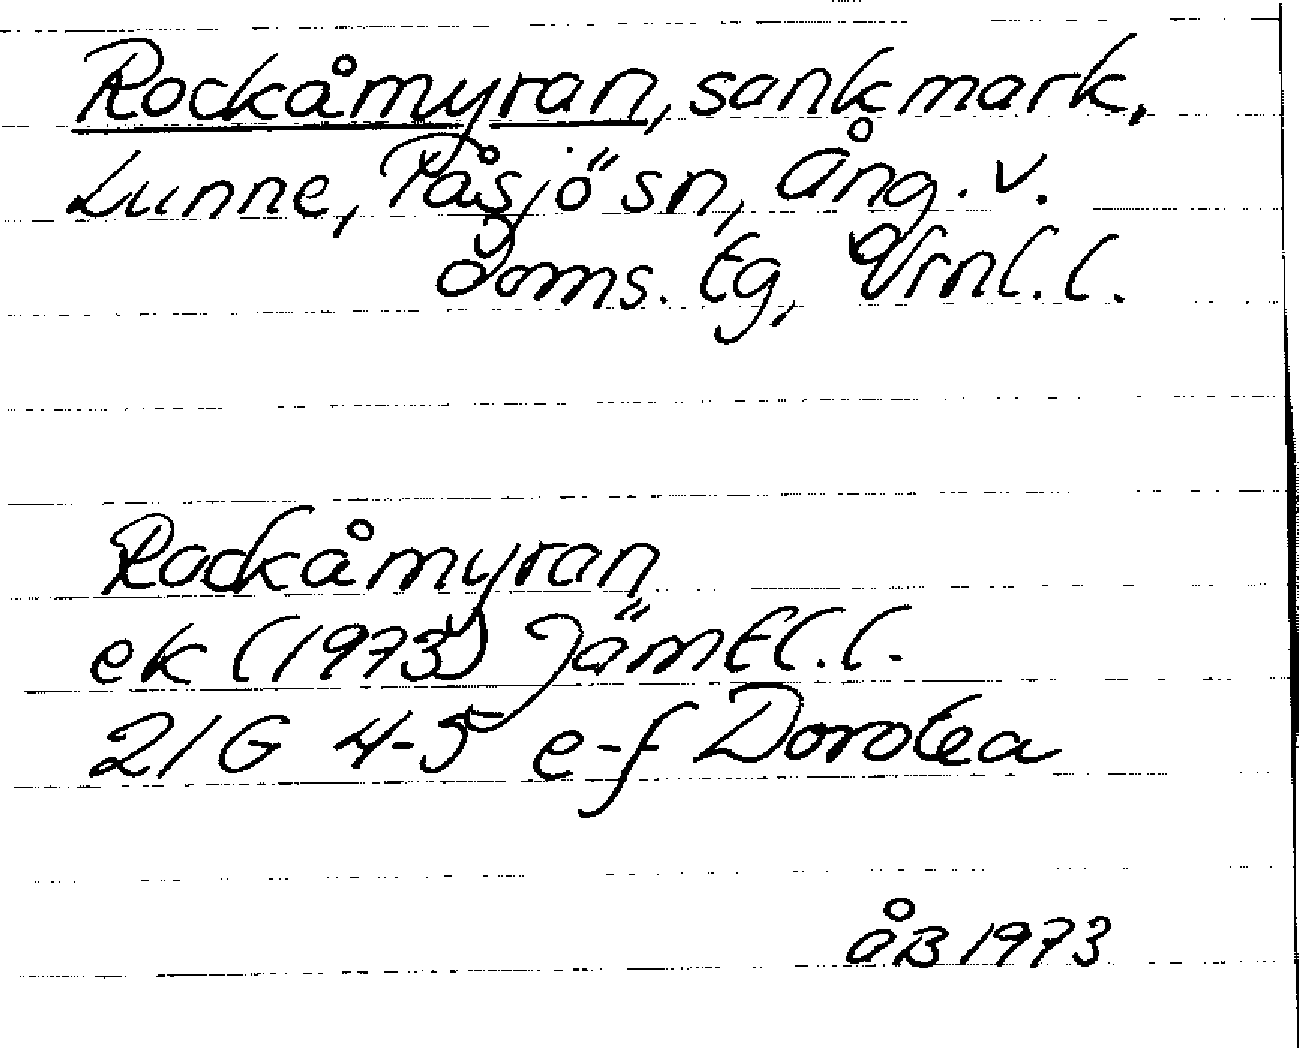 Rockåmyran, sankmark,
Lunne, Tåsjö sn, Ång. v.
doms. tg, Vrnl. l.
Rockåmyran
ek (1973) Jämtl. l.
21G 4-5 e-f Dorotea
ÅB 1973